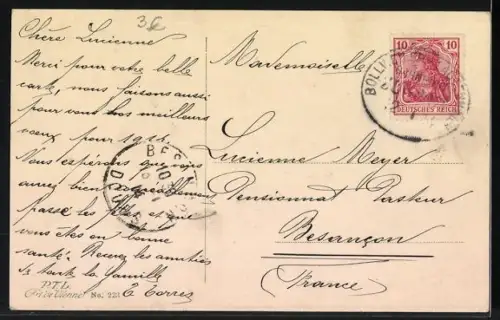 36
Chère Lucienne
Merci pour votre belle
carte, nous faisons aussi
pour vous nos meilleurs
voeux pour 1914.
Nous espérons que vous
aurez bien
passé les fêtes et que
vous êtes en bonne
santé. Recevez les amitiés
de toute la famille
E. Torres
P.T.L.
No. 221
Mademoiselle
Lucienne Meyer
Pensionnat Pasteur
Besançon
(France)
10 10
DEUTSCHES REICH
BOLLW
BES
DOUBS